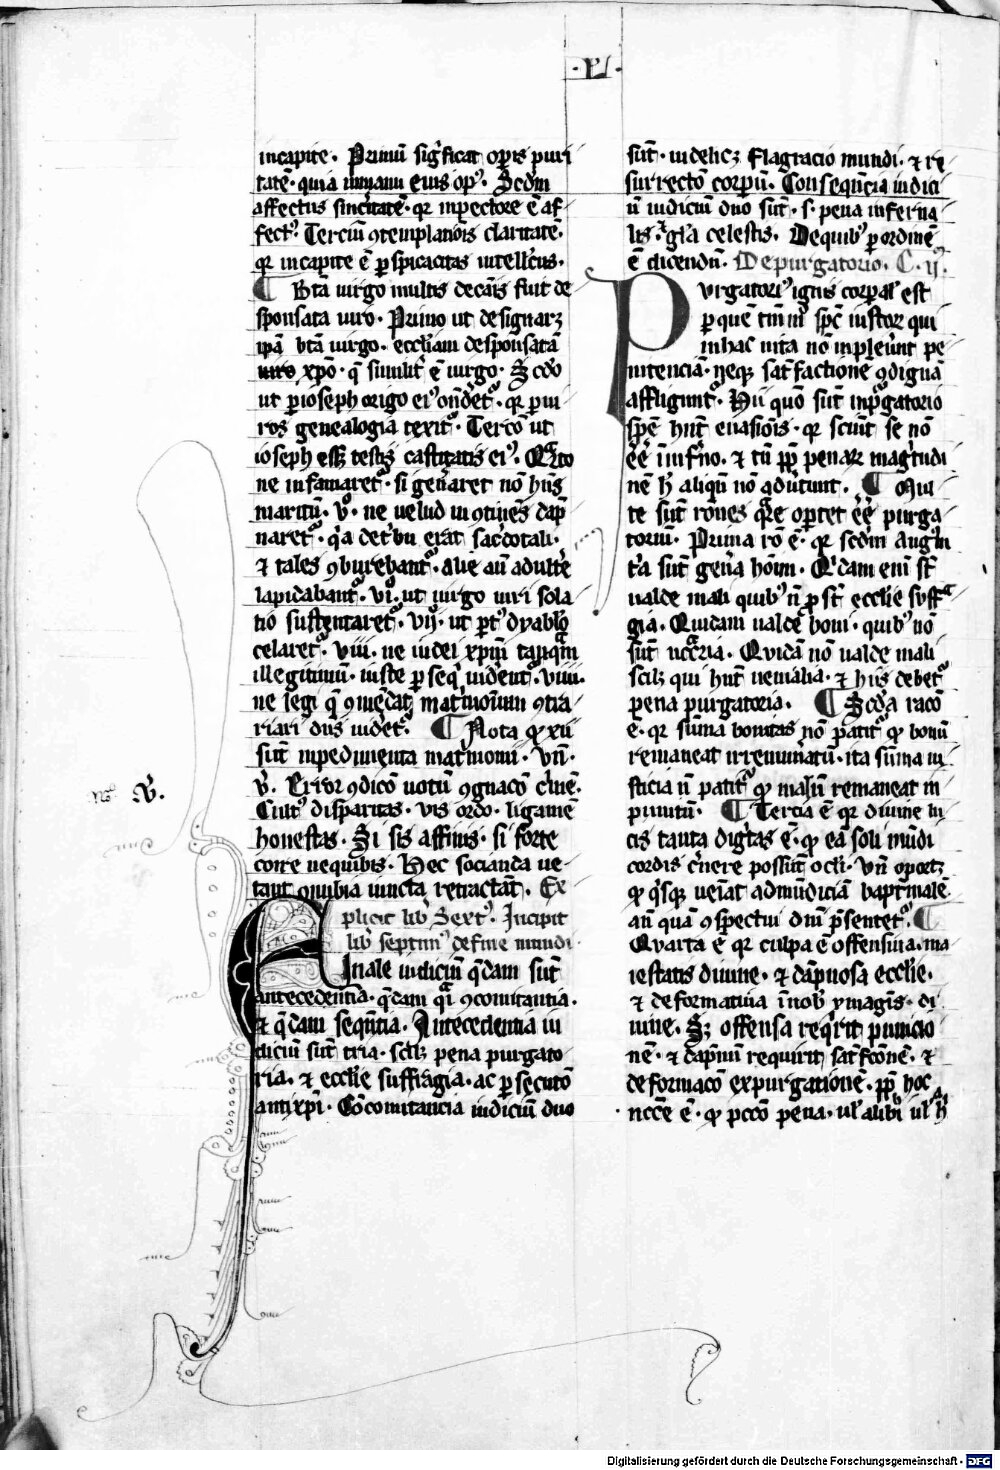 ·VI·
incapite· Primū sigͥficat oꝑis puri
tatē· quia īmanu eius opꝰ. Scd̄m
affectus sinc̄itatē· qꝛ inpectore ē af
fectꝰ. Terciū ꝯtemplanōis claritatē·
qꝛ incapite ē ꝑspicacitas intellc̄us·
¶ Btā uirgo multis decāis fuit de
sponsata uiro· Primo ut designarꝫ
ip̄ā btā uirgo· eccliam desponsatā
uiro xp̄o· q̄ similit̄ ē uirgo· Scd̄o
ut ꝑ ioseph origo eiꝰ ondēt̉· qꝛ ꝑ ui
ros genealogia texit̉· Tercō ut
ioseph eēt testis castitatis eiꝰ. Qͣrto
ne infamaret̉· si gen̄aret nō hn̄s
maritū· v̊· ne uelud in otūies dāp
naret̉· qͥa det̄bu erāt sac̄dotali·
⁊ tales ꝯburebant̉· alie aū adult̄e
lapidabant̉· vi̊· ut uirgo uiri sola
tio sustentaret̉· vij̊· ut ꝑtꝰ dyablo
celaret̉· viii· ne iudei xp̄m tanqͣm
illegitimū· iuste ꝑseqͥ uidēnt̉· viiii·
ne legi q̄ ꝯiūgēdat mat̓monium ꝯtra
riari dn̄s uidet̉· ¶ Nota qꝫ xii
sūt inpedimenta mat̓monii· Vn̄·
v̓. Error ꝯdicō uotū ꝯgnacō c̓mē·
Cultꝰ disparitas· vis ordo· ligamē
honestas· Si sis affinis· si forte
coire nequibis· Hec socianda ue-
tant ꝯnubia iuncta retractāt· Ex
plicit lib̓ Sextꝰ. Incipit
lib̓ septimꝰ de fine mundi·
Finale iudiciū q̄dam sūt
antecedentia· q̄dam qͣi ꝯcomitantia·
⁊ q̄dam seqn̄tia· Antecedentia iu
diciū sūt tria· scilꝫ pena purgato
ria· ⁊ ecclie suffragia· ac ꝑsecutō
antixp̄i· Cōcomitancia iudiciū duo
sūt· uidelicꝫ flagracio mundi· ⁊ re
surrectō corpꝝ. Conseqn̄cia iudici
ū iudiciū duo sūt· s· pena inferna
lis· gl̓a celestis· Dequibꝰ ꝑ ordinē
ē dicendū· De purgatorio· C· ij·
Purgatoriꝰ ignis corꝑal̓ est
ꝑ quē
inhac uita nō inpleūnt pe
nitenciā· neqꝫ satͥfactione ꝯdignā
affligunt̉· Hii quō sūt inpͥgatorio
spē hn̄t euasiōis· qꝛ sciūt se nō
ēē īinf̓no· ⁊ tn̄ ꝓp̄ penaꝝ magͥtudi
nē h̄ aliqn̄ nō aduertunt· ¶ Mul
te sūt rōnes qͣre oportet ēē purga
toriū· Prima rō ē· qꝛ scd̄m Augͥm
tͥa sūt gen̄a hoīm· Qͥdam enī st̄
ualde mali quibꝰ n̄ ꝓst̄ ecclie suffͣ
gia· Quidam ualde boni· quibꝰ nō
sūt nc̄cͣria· Quidā nō ualde mali
scilꝫ qui hn̄t uenialia· ⁊ hiis debet̉
pena purgatoria· ¶ Scd̄a racō
ē· qꝛ sūma bonitas nō patit̉ qꝫ bonū
remaneat irremun̄atū· ita sūma iu
sticia n̄ patit̉ qꝫ malū remaneat in
punitū· ¶ Tercia ē qꝛ diuine lu
cis tanta digͥtas ē· qꝫ eā soli mūdi
cordis c̓nere possūt ocl̓i· Vn̄ oportꝫ
qꝫ qͥsqꝫ ueīat admūdiciā bapt̓malē·
an̄ quā ꝯspectui dn̄i p̄sentet̉· ¶
Quarta ē qꝛ culpa ē offensiua· ma
iestatis diuine· ⁊ dāpnosa ecclie·
⁊ deformatiua īnobͥ ymagīs· di
uine. Sꝫ offensa reqͥrit punicio
nē· ⁊ dāpnū requirit satͥfcōnē· ⁊
deformacō expurgationē· ꝓp̄ hoc
necc̄e ē· qꝫ pccō pena· ul̓ alibi ul̓ h̄
v̓·
Digitalisierung gefördert durch die Deutsche Forschungsgemeinschaft - DFG